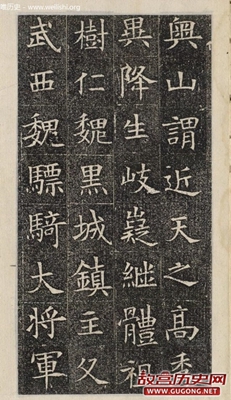 奥山謂近天之髙秀
異降生岐嶷継體祖
樹仁魏黑城鎮主父
武西魏驃騎大將軍
历史 - www.welishi.org
故宫历史网